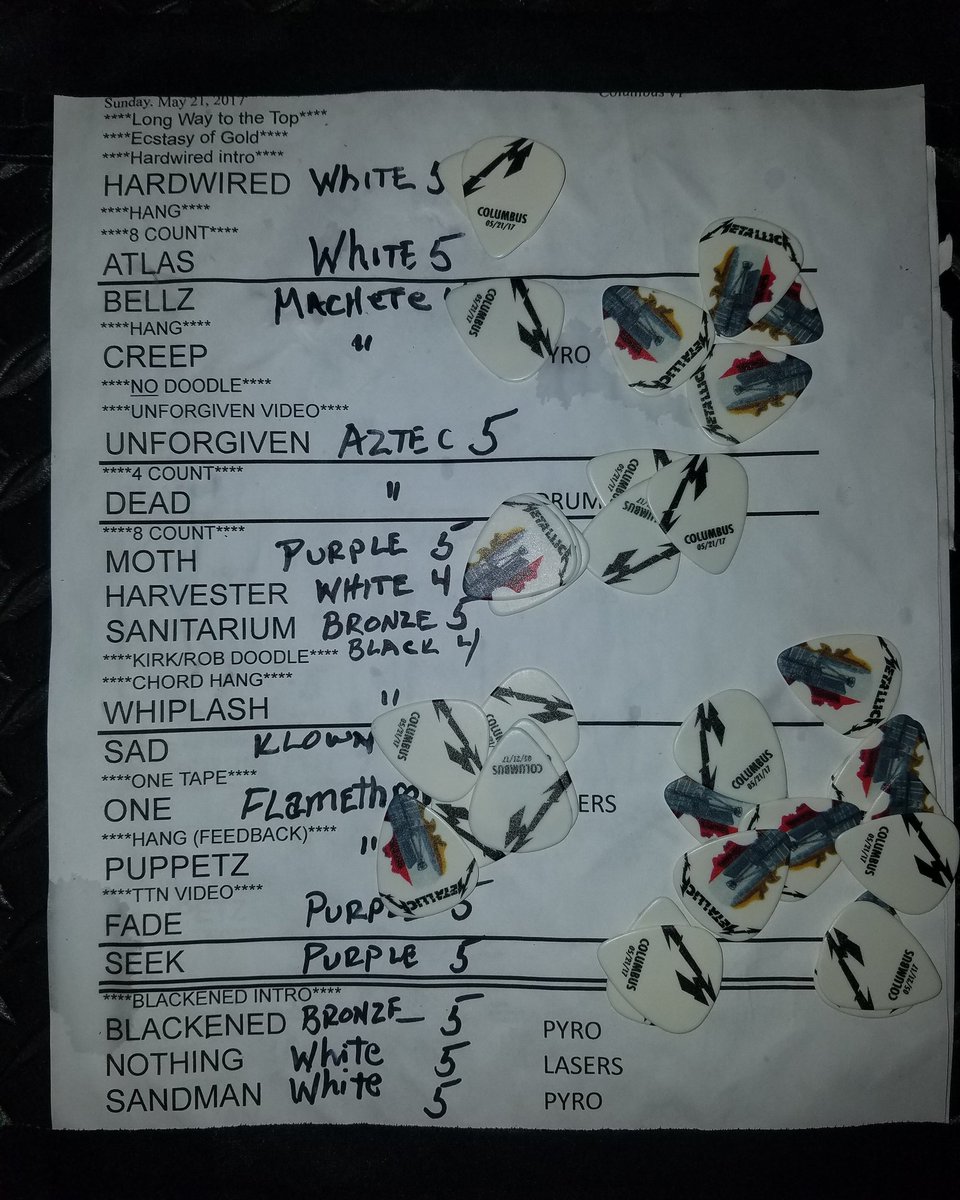 Sunday, May 21, 2017
****Long Way to the Top****
****Ecstasy of Gold****
****Hardwired intro****
HARDWIRED WHITE 5
****HANG****
****8 COUNT****
ATLAS WHITE 5
BELLZ MACHETE
****HANG****
CREEP " YRO
****NO DOODLE****
****UNFORGIVEN VIDEO****
UNFORGIVEN AZTEC 5
****4 COUNT****
DEAD " DRUM
****8 COUNT****
MOTH PURPLE 5
HARVESTER WHITE 4
SANITARIUM BRONZE 5
****KIRK/ROB DOODLE**** BLACK 4
****CHORD HANG****
WHIPLASH "
SAD KLOWN
****ONE TAPE****
ONE FLAMETH ERS
****HANG (FEEDBACK)****
PUPPETZ "
****TTN VIDEO****
FADE PURPL 5
SEEK PURPLE 5
****BLACKENED INTRO****
BLACKENED BRONZE 5 PYRO
NOTHING White 5 LASERS
SANDMAN White 5 PYRO
COLUMBUS
05/21/17
COLUMBUS
05/21/17
METALLICA
METALLICA
METALLICA
COLUMBUS
05/21/17
COLUMBUS
05/21/17
METALLICA
COLUMBUS
05/21/17
COLUMBUS
05/21/17
METALLICA
METALLICA
COLUMBUS
05/21/17
METALLICA
COLUMBUS
05/21/17
COLUMBUS
05/21/17
COLUMBUS
05/21/17